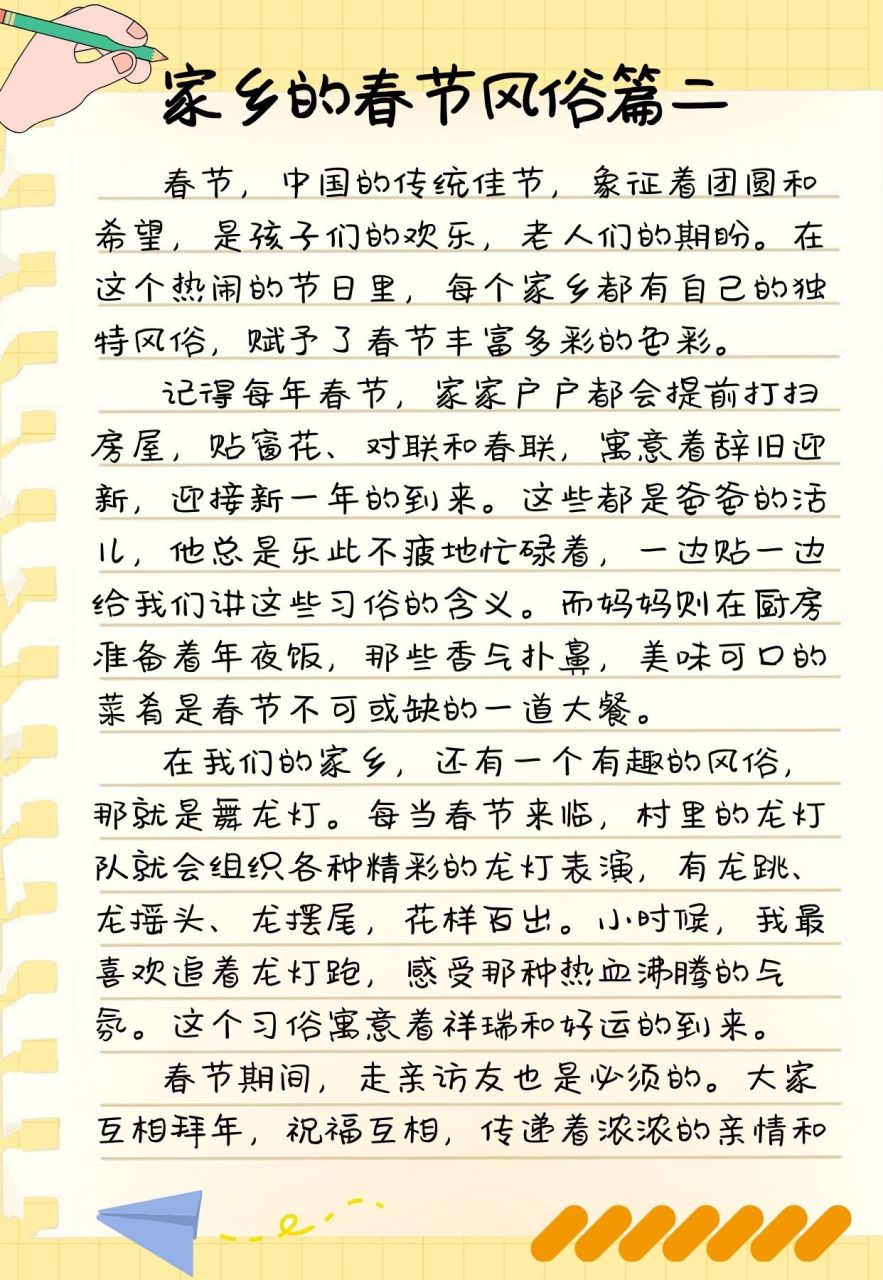 家乡的春节风俗篇二
春节，中国的传统佳节，象征着团圆和
希望，是孩子们的欢乐，老人们的期盼。在
这个热闹的节日里，每个家乡都有自己的独
特风俗，赋予了春节丰富多彩的色彩。
记得每年春节，家家户户都会提前打扫
房屋，贴窗花、对联和春联，寓意着辞旧迎
新，迎接新一年的到来。这些都是爸爸的活
儿，他总是乐此不疲地忙碌着，一边贴一边
给我们讲这些习俗的含义。而妈妈则在厨房
准备着年夜饭，那些香气扑鼻，美味可口的
菜肴是春节不可或缺的一道大餐。
在我们的家乡，还有一个有趣的风俗，
那就是舞龙灯。每当春节来临，村里的龙灯
队就会组织各种精彩的龙灯表演，有龙跳、
龙摇头、龙摆尾，花样百出。小时候，我最
喜欢追着龙灯跑，感受那种热血沸腾的气
氛。这个习俗寓意着祥瑞和好运的到来。
春节期间，走亲访友也是必须的。大家
互相拜年，祝福互相，传递着浓浓的亲情和